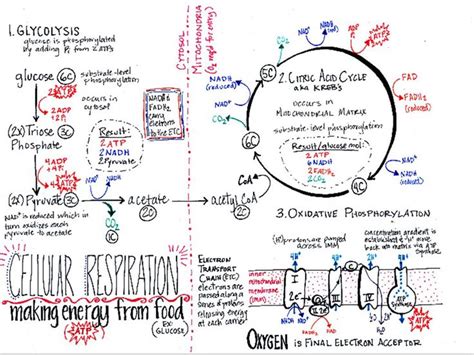 1. GLYCOLYSIS
glucose is phosphorylated
by adding Pi from 2 ATP's
glucose 6C
substrate-level
phosphorylation
2 ADP
occurs in
cytosol
(2x) Triose 3C
Phosphate
4 ADP
4 ATP
Result:
2 ATP
2 NADH
2 Pyruvate
(2x) Pyruvate 3C
NAD+ NADH
acetate 2C
CO2 1C
NAD+ is reduced which in
turn oxidizes each
pyruvate to acetate
CYTOSOL
MITOCHONDRIA
NADH &
FADH2
carry
electrons
to the ETC
CoA
acetyl CoA
2. CITRIC ACID CYCLE
aka KREB'S
occurs in
MITOCHONDRIAL MATRIX
substrate-level phosphorylation
Result/glucose mol:
2 ATP
6 NADH
2 FADH2
4 CO2
6C
5C
4C
CO2
CO2
NAD+
NADH
(reduced)
NADH
(reduced)
NAD+
FAD
FADH2
(reduced)
NAD+
NADH
3. OXIDATIVE PHOSPHORYLATION
ELECTRON
TRANSPORT
CHAIN (ETC)
electrons are
passed along a
releasing energy
at each carrier
protons are pumped
across IMM
concentration gradient is
established & H+ move
back into matrix via ATP
synthase
inner
mitochondrial
membrane
I
II
III
IV
C
ATP
Synthase
2e-
H+
NADH NAD+
ADP
ATP
CELLULAR RESPIRATION
making energy from food
ATP
(EX:
GLUCOSE)
OXYGEN IS FINAL ELECTRON ACCEPTOR